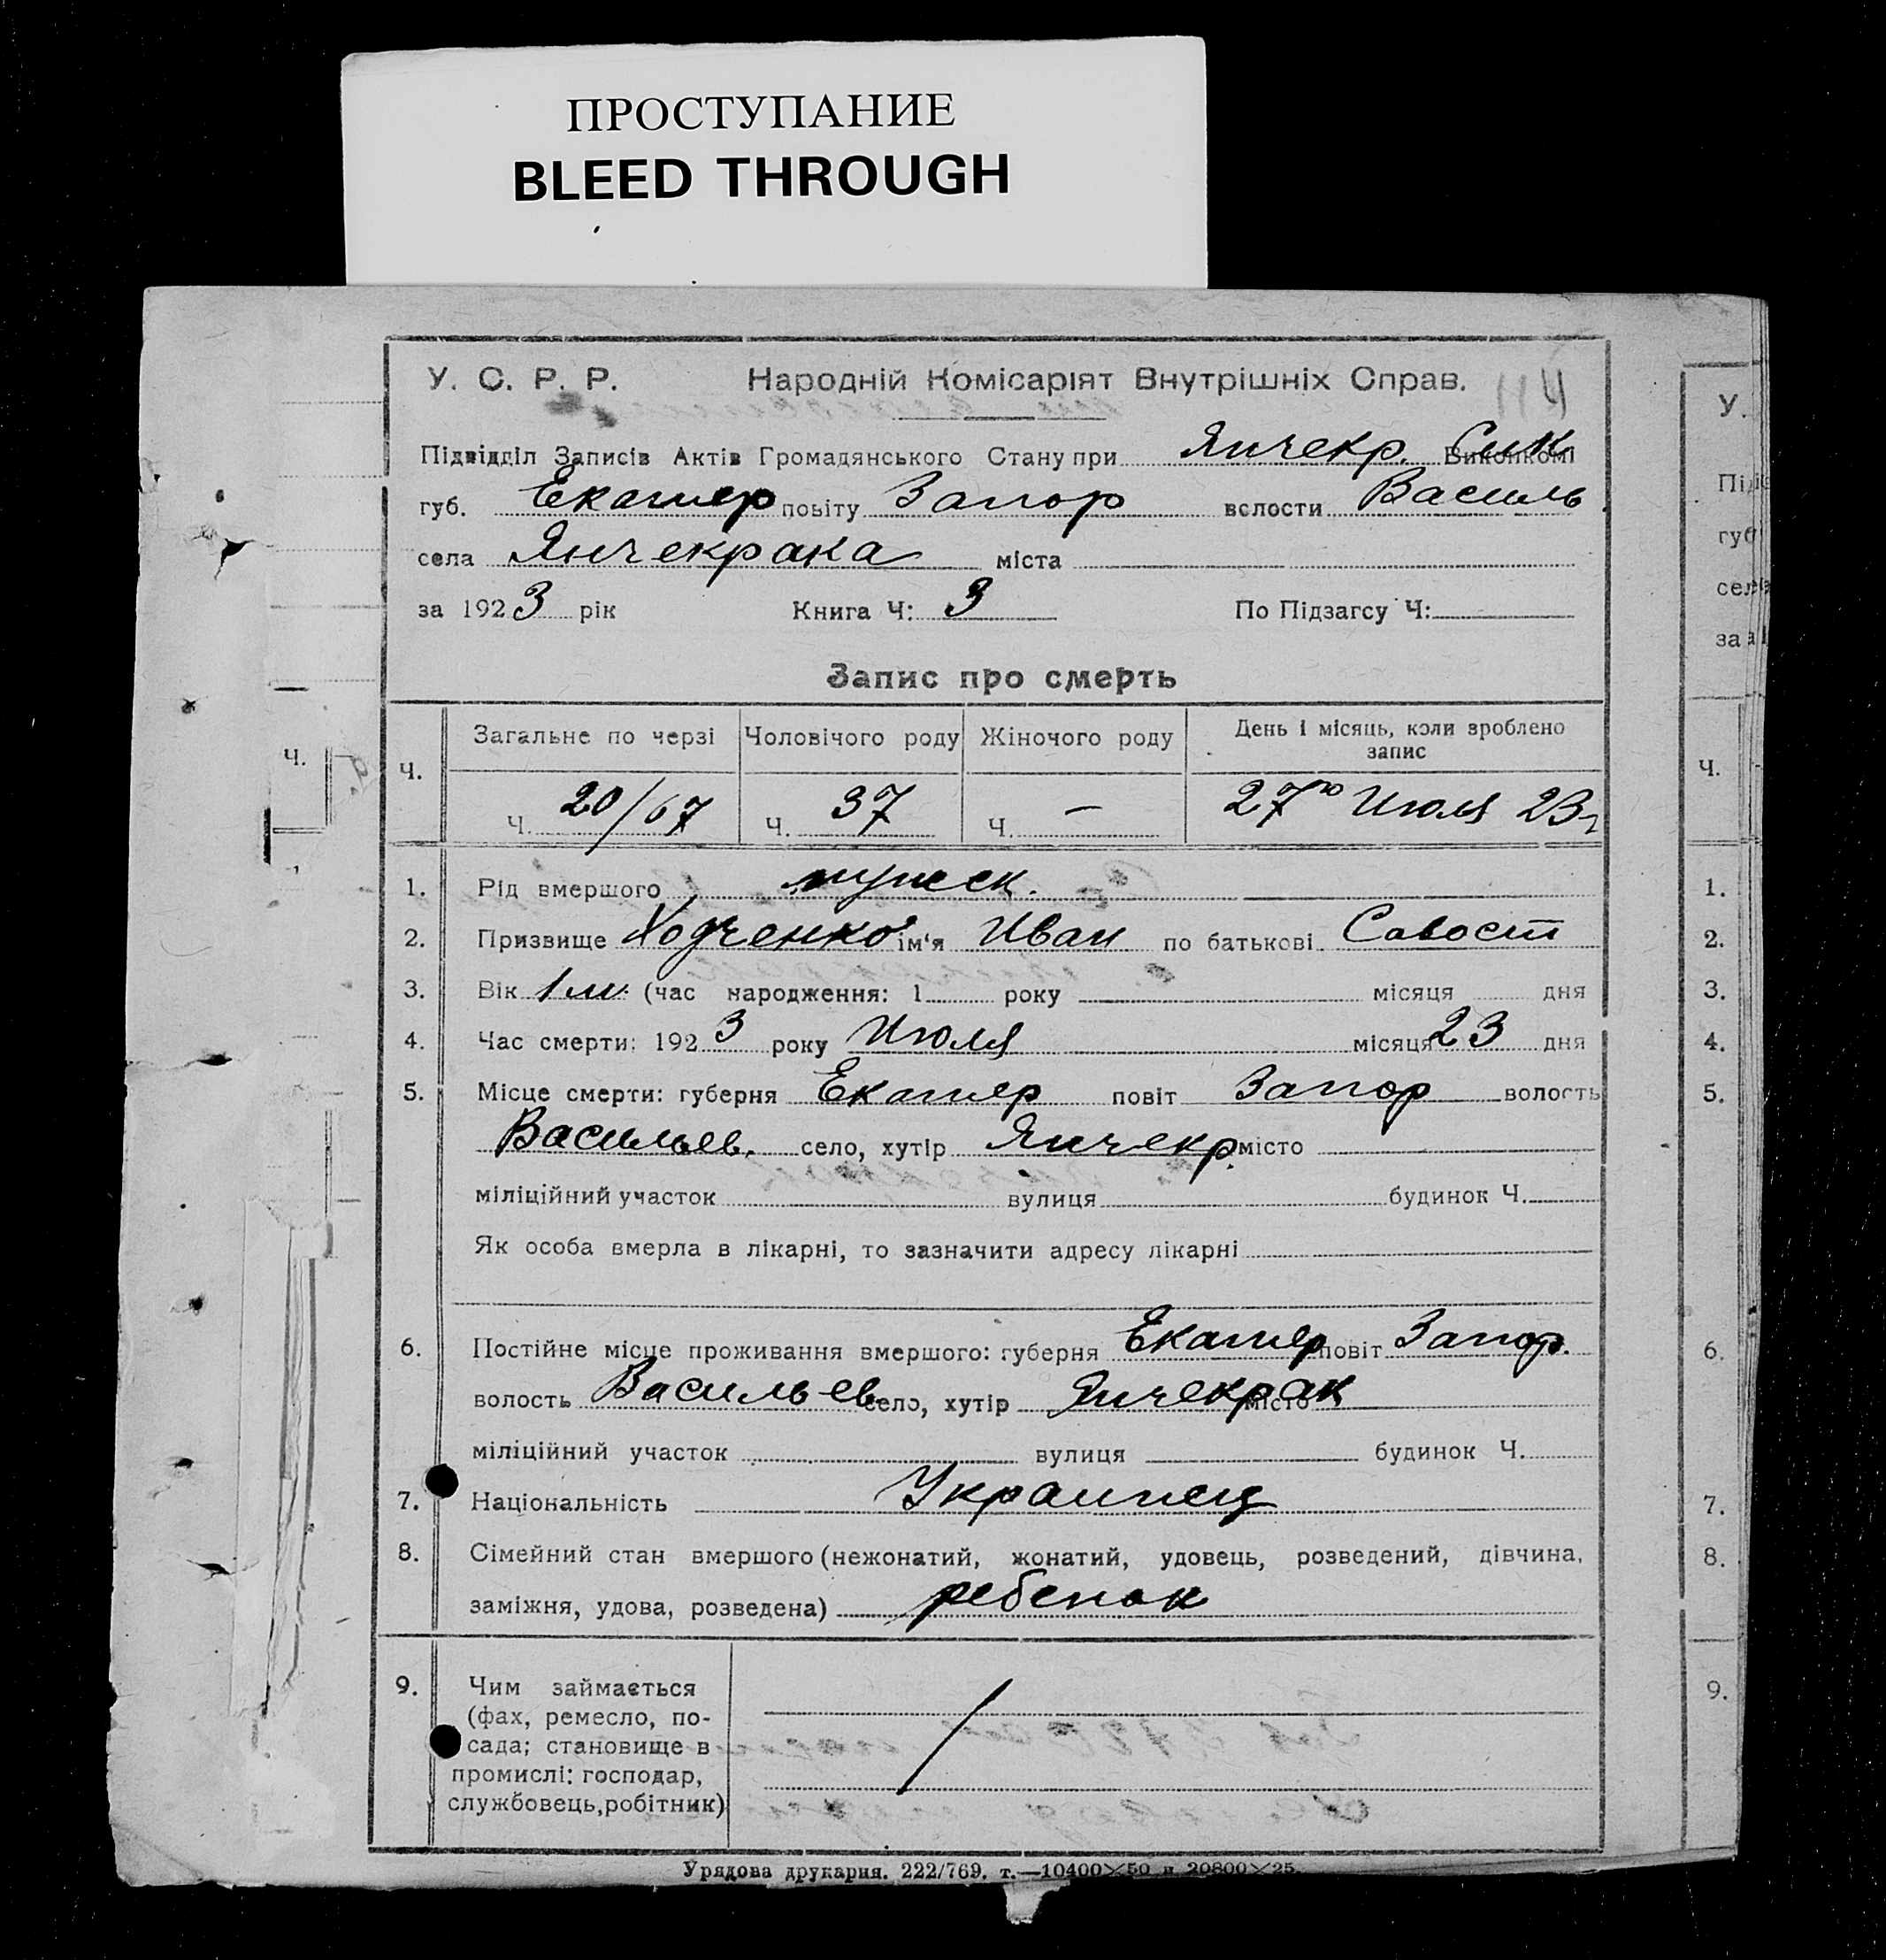 ПРОСТУПАНИЕ
BLEED THROUGH
У. С. Р. Р. Народній Комісаріят Внутрішніх Справ.
Підвідділ Записів Актів Громадянського Стану при Янчекр. Виконкомі
губ. Екатер повіту Запор волости Василь
села Янчекрака міста
за 1923 рік Книга Ч: 3 По Підзагсу Ч:
Запис про смерть
Ч. Загальне по черзі Чоловічого роду Жіночого роду День і місяць, коли зроблено запис
Ч. 20/67 Ч. 37 Ч. — 27го Июля 23г
1. Рід вмершого мужеск.
2. Призвище Ходченко ім'я Иван по батькові Савост
3. Вік 1 м. (час народження: 1 року місяця дня
4. Час смерти: 1923 року Июля місяця 23 дня
5. Місце смерти: губерня Екатер повіт Запор волость
Васильев. село, хутір Янчекр. місто
міліційний участок вулиця будинок Ч.
Як особа вмерла в лікарні, то зазначити адресу лікарні
6. Постійне місце проживання вмершого: губерня Екатер повіт Запор.
волость Васильев село, хутір Янчекрак місто
міліційний участок вулиця будинок Ч.
7. Національність Украинец
8. Сімейний стан вмершого (нежонатий, жонатий, удовець, розведений, дівчина,
заміжня, удова, розведена) ребенок
9. Чим займається
(фах, ремесло, по-
сада; становище в
промислі: господар,
службовець, робітник)
Урядова друкарня. 222/769. т.—10400×50 и 20800×25.
У.
Під
губ
сел
за
Ч.
1.
2.
3.
4.
5.
6.
7.
8.
9.
Ч.